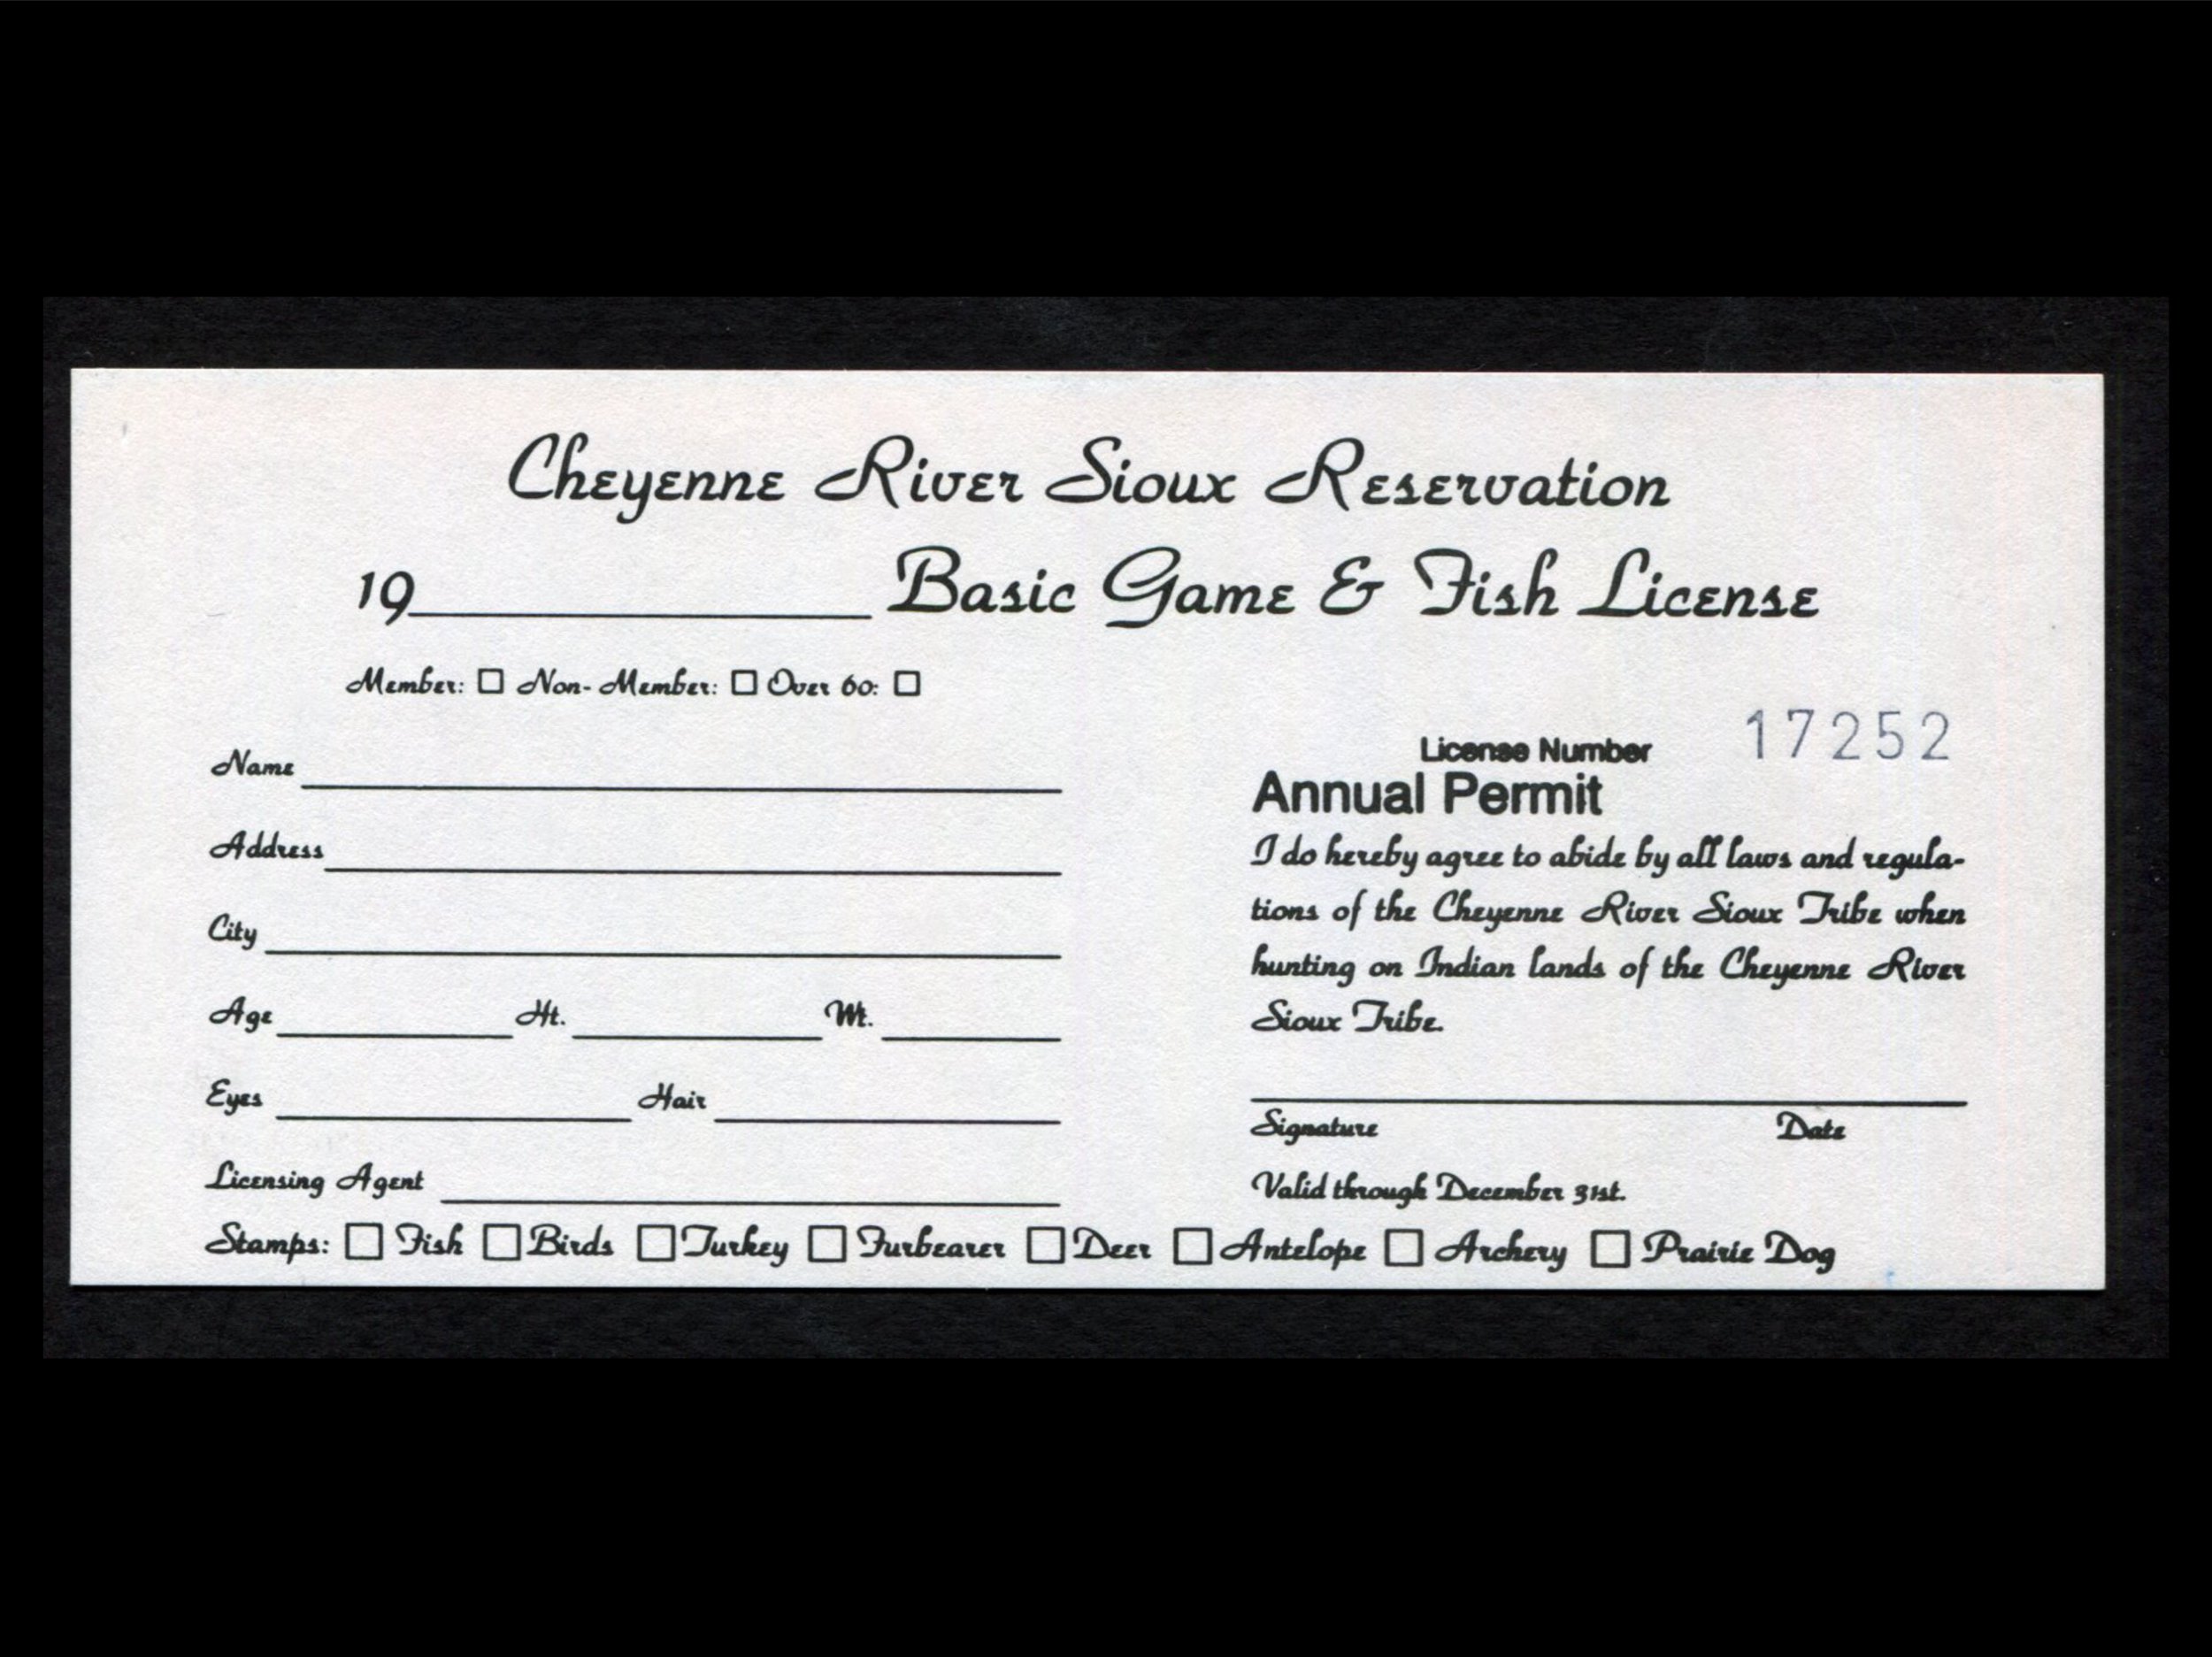 Cheyenne River Sioux Reservation
19 Basic Game & Fish License
Member: Non-Member: Over 60:
License Number 17252
Annual Permit
Name
Address
City
Age Ht. Wt.
Eyes Hair
Licensing Agent
I do hereby agree to abide by all laws and regula-
tions of the Cheyenne River Sioux Tribe when
hunting on Indian lands of the Cheyenne River
Sioux Tribe.
Signature Date
Valid through December 31st.
Stamps: Fish Birds Turkey Furbearer Deer Antelope Archery Prairie Dog